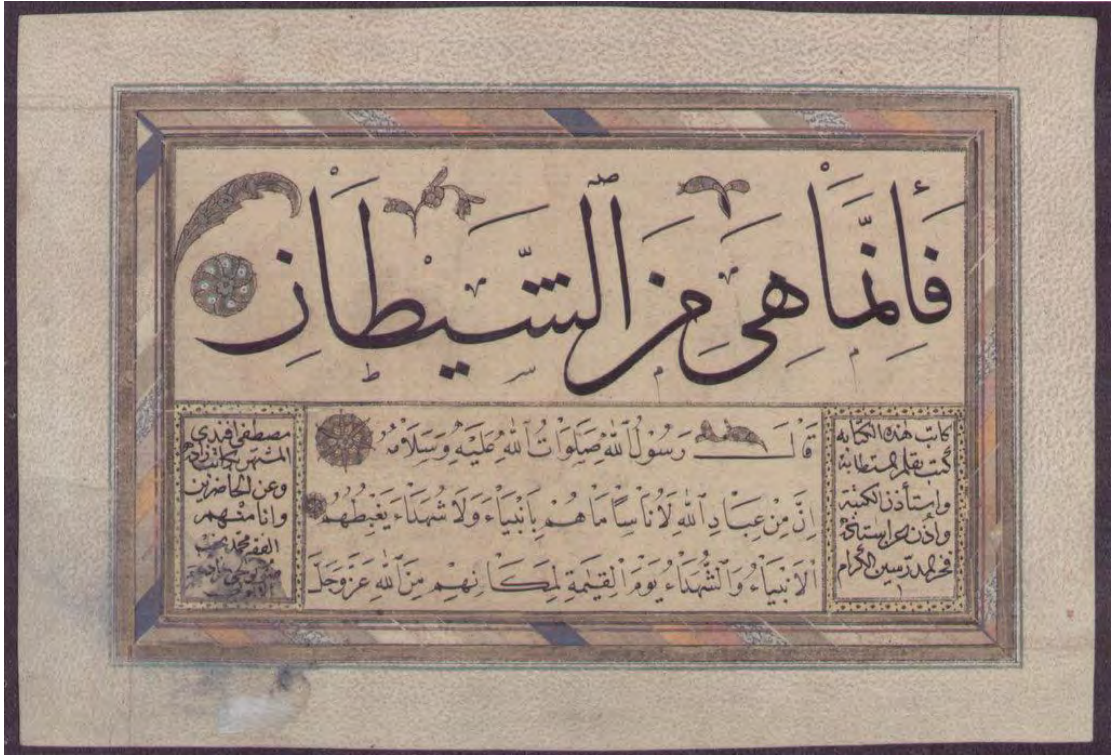 فَأِنَّمَا هِيَ مِنَ الشَّيْطَانِ
قَالَ رَسُولُ اللهِ صَلَوَاتُ اللهِ عَلَيْهِ وَسَلَامُهُ
اِنَّ مِنْ عِبَادِ اللهِ لَاُنَاسًا مَا هُمْ بِاَنْبِيَاءَ وَلَا شُهَدَاءَ يَغْبِطُهُمُ
الْاَنْبِيَاءُ وَالشُّهَدَاءُ يَوْمَ الْقِيٰمَةِ لِمَكَانِهِمْ مِنَ اللهِ عَزَّ وَجَلَّ
كاتب هذه الكتابه
كتب بقلم
واستأذن الكتبة
واذن عن استاذه
فخر المدرسين الكرام
مصطفى افندى
المشتهر بكاتب زاده
وعن الحاضرين
وانا منهم
الفقير محمد